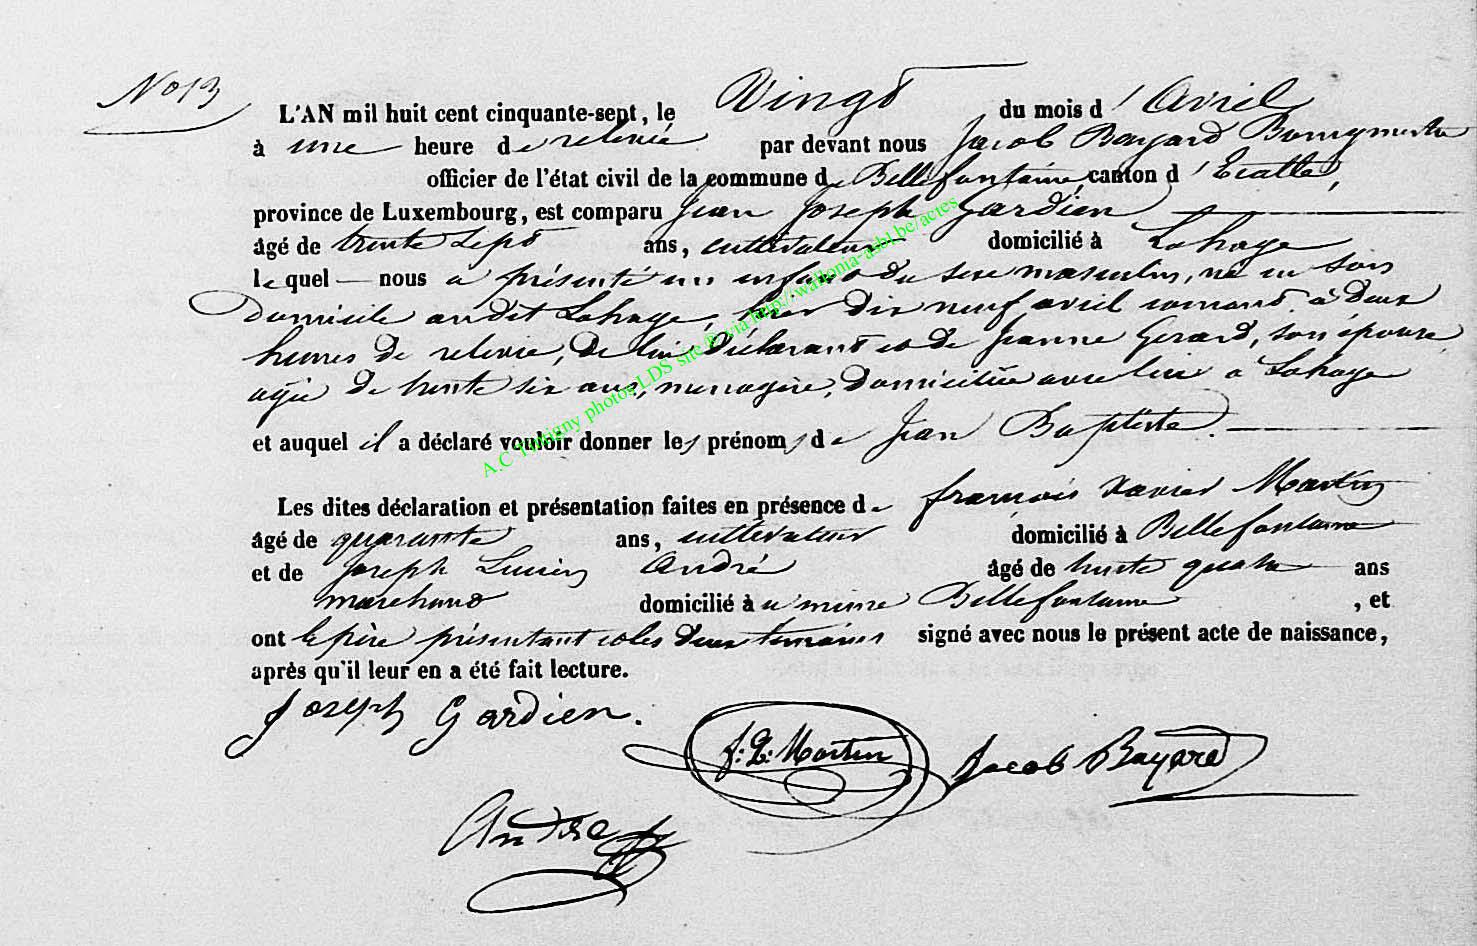 No 13
L'AN mil huit cent cinquante-sept, le Vingt du mois d'Avril
à une heure de relevée par devant nous Jacob Bayard Bourgmestre
officier de l'état civil de la commune de Bellefontaine, canton d'Etalle,
province de Luxembourg, est comparu Jean Joseph Gardien
âgé de trente sept ans, cultivateur domicilié à Lahage
lequel nous a présenté un enfant du sexe masculin, né en son
Domicile audit Lahage, hier dix neuf avril courant à deux
heures de relevée, de lui Déclarant et de Jeanne Gerard, son épouse,
agée de trente six ans, menagère, domiciliée avec lui a Lahage
et auquel il a déclaré vouloir donner les prénoms de Jean Baptiste.
Les dites déclaration et présentation faites en présence de françois Xavier Martin
âgé de quarante ans, cultivateur domicilié à Bellefontaine
et de Joseph Lucien André âgé de trente quatre ans
marchand domicilié à u même Bellefontaine, et
ont le père présentant et les deux temoins signé avec nous le présent acte de naissance,
après qu'il leur en a été fait lecture.
Joseph Gardien.
f: X: Martin
Jacob Bayard
André
A.C Tintigny photos LDS site via http://wallonia-asbl.be/actes